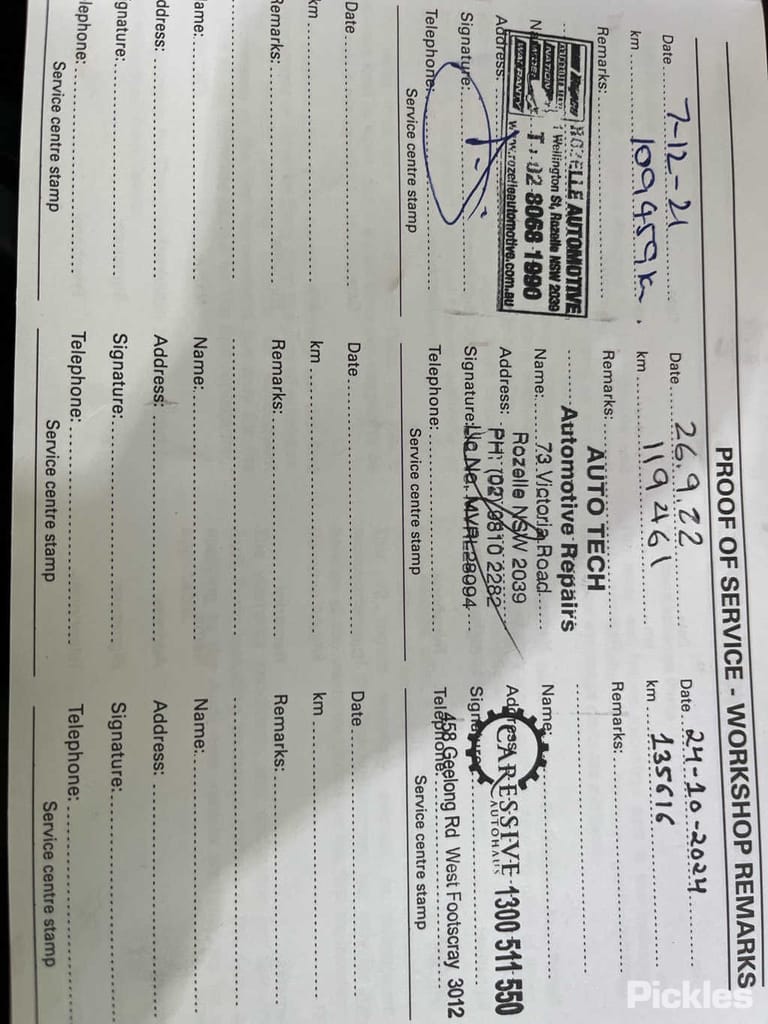 PROOF OF SERVICE - WORKSHOP REMARKS
Date 7-12-21
km 109459k.
Remarks:
Repco ROZELLE AUTOMOTIVE
AUTHORISED SERVICE 1 Wellington St, Rozelle NSW 2039
NATIONWIDE T: 02 8068 1990
WARRANTY www.rozelleautomotive.com.au
Address:
Signature:
Telephone:
Service centre stamp
Date 26.9.22
km 119461
Remarks:
AUTO TECH
Automotive Repairs
Name: 73 Victoria Road
Rozelle NSW 2039
Address: PH: (02) 9810 2282
Signature: Lic No. MVRL28094
Telephone:
Service centre stamp
Date 24-10-2024
km 135616
Remarks:
Name:
Address:
CARESSIVE 1300 511 550
AUTOHAUS
Signature:
458 Geelong Rd West Footscray 3012
Telephone:
Service centre stamp
Date
km
Remarks:
Name:
Address:
Signature:
Telephone:
Service centre stamp
Date
km
Remarks:
Name:
Address:
Signature:
Telephone:
Service centre stamp
Date
km
Remarks:
Name:
Address:
Signature:
Telephone:
Service centre stamp
Pickles